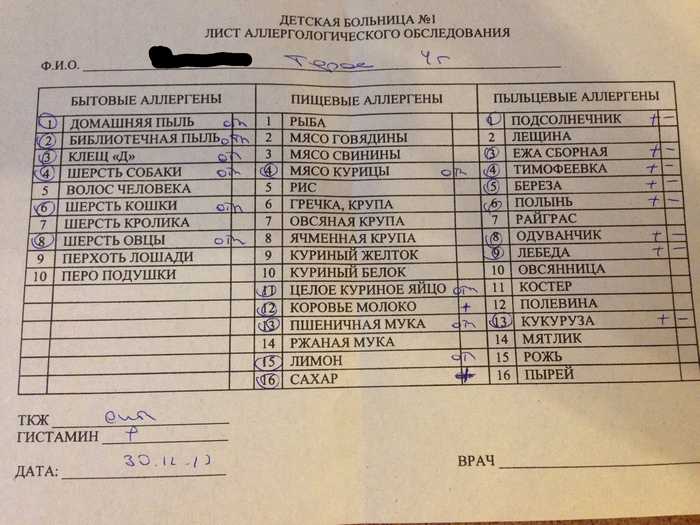 ДЕТСКАЯ БОЛЬНИЦА №1
ЛИСТ АЛЛЕРГОЛОГИЧЕСКОГО ОБСЛЕДОВАНИЯ
Ф.И.О. 4 г
БЫТОВЫЕ АЛЛЕРГЕНЫ ПИЩЕВЫЕ АЛЛЕРГЕНЫ ПЫЛЬЦЕВЫЕ АЛЛЕРГЕНЫ
1 ДОМАШНЯЯ ПЫЛЬ отр 1 РЫБА 1 ПОДСОЛНЕЧНИК + −
2 БИБЛИОТЕЧНАЯ ПЫЛЬ отр 2 МЯСО ГОВЯДИНЫ 2 ЛЕЩИНА
3 КЛЕЩ «Д» отр 3 МЯСО СВИНИНЫ 3 ЕЖА СБОРНАЯ + −
4 ШЕРСТЬ СОБАКИ отр 4 МЯСО КУРИЦЫ отр 4 ТИМОФЕЕВКА + −
5 ВОЛОС ЧЕЛОВЕКА 5 РИС 5 БЕРЕЗА + −
6 ШЕРСТЬ КОШКИ отр 6 ГРЕЧКА, КРУПА 6 ПОЛЫНЬ + −
7 ШЕРСТЬ КРОЛИКА 7 ОВСЯНАЯ КРУПА 7 РАЙГРАС
8 ШЕРСТЬ ОВЦЫ отр 8 ЯЧМЕННАЯ КРУПА 8 ОДУВАНЧИК + −
9 ПЕРХОТЬ ЛОШАДИ 9 КУРИНЫЙ ЖЕЛТОК 9 ЛЕБЕДА + −
10 ПЕРО ПОДУШКИ 10 КУРИНЫЙ БЕЛОК 10 ОВСЯННИЦА
11 ЦЕЛОЕ КУРИНОЕ ЯЙЦО отр 11 КОСТЕР
12 КОРОВЬЕ МОЛОКО + 12 ПОЛЕВИНА
13 ПШЕНИЧНАЯ МУКА отр 13 КУКУРУЗА + −
14 РЖАНАЯ МУКА 14 МЯТЛИК
15 ЛИМОН отр 15 РОЖЬ
16 САХАР + 16 ПЫРЕЙ
ТКЖ отр
ГИСТАМИН +
ДАТА: ВРАЧ